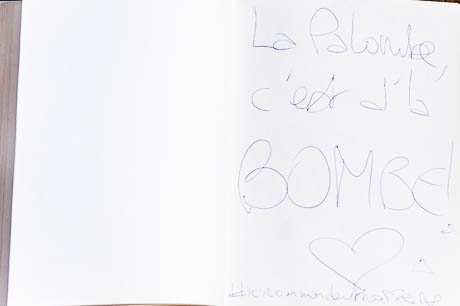 La Palombe,
c'est d'la
BOMBE!